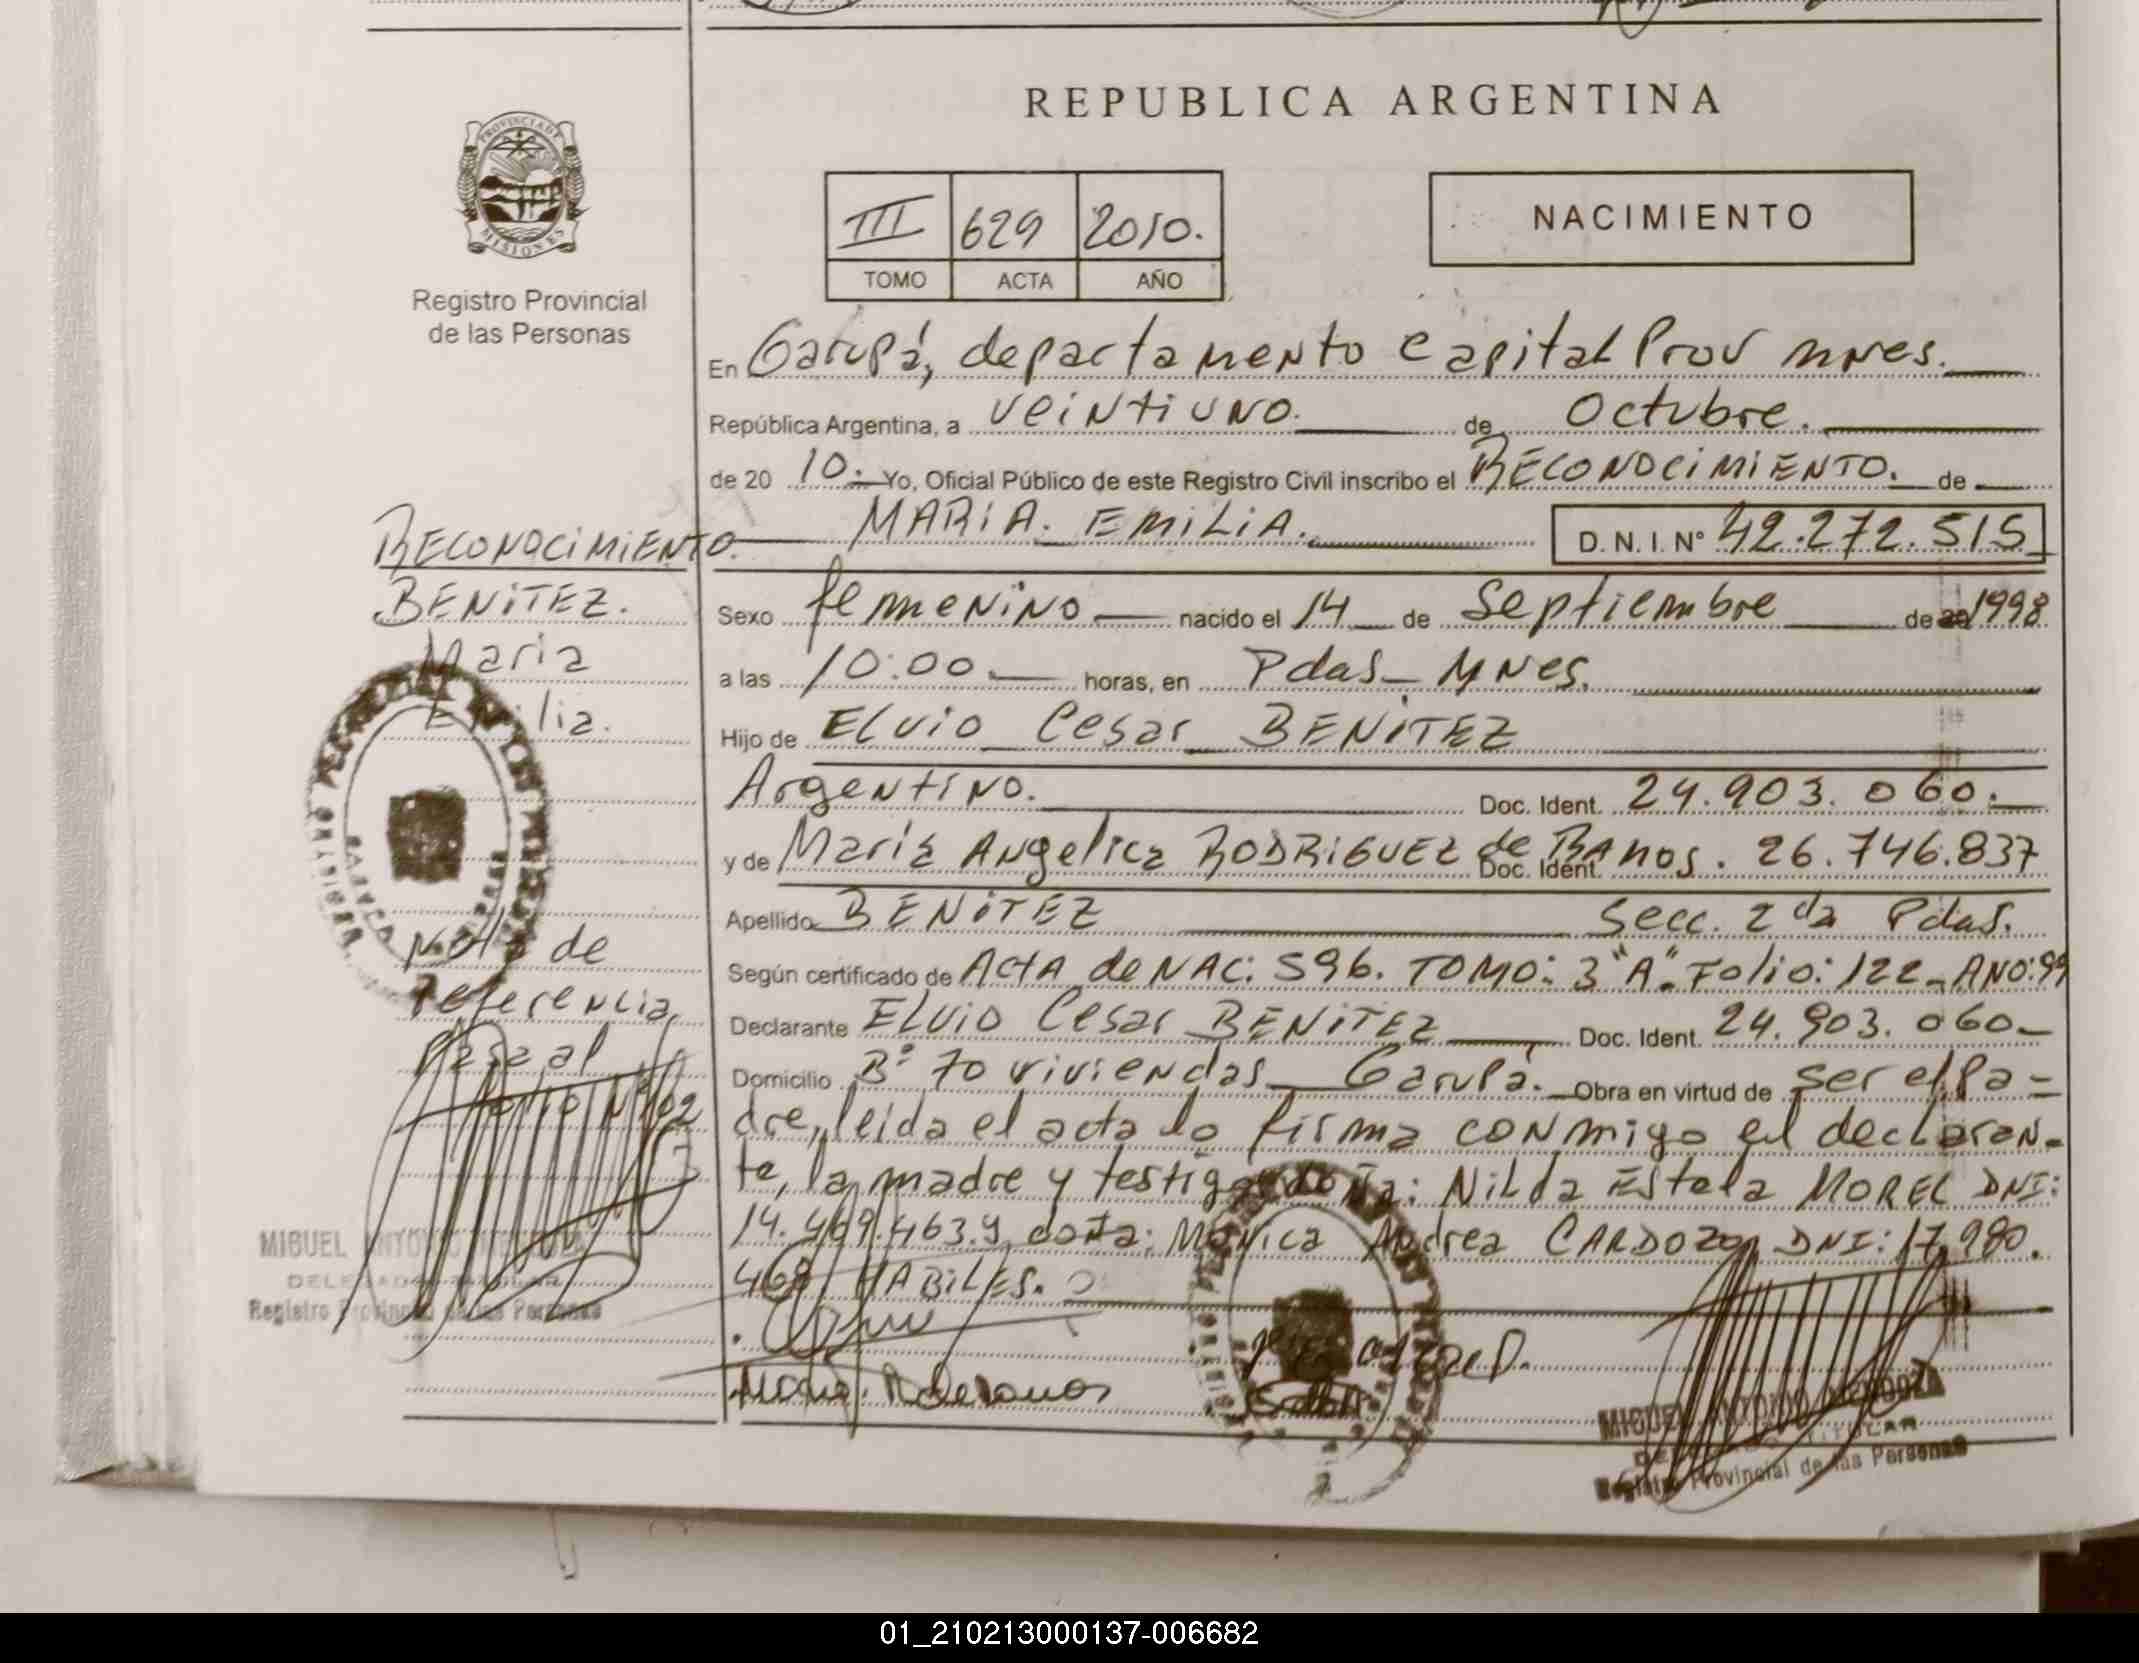 REPUBLICA ARGENTINA
PROVINCIA DE
MISIONES
Registro Provincial
de las Personas
III 629 2010.
TOMO ACTA AÑO
NACIMIENTO
En Garupá, departamento capital Prov mnes.
República Argentina, a veintiuno. de Octubre.
de 20 10. Yo, Oficial Público de este Registro Civil inscribo el RECONOCIMIENTO. de
MARIA. EMILIA. D.N.I. N° 42.272.515
Sexo femenino nacido el 14 de Septiembre de 1998
a las 10:00 horas, en Pdas_ MNes.
Hijo de ELVIO Cesar BENITEZ
Argentino. Doc. Ident. 24.903.060.
y de María Angelica RODRIGUEZ de RAMOS. Doc. Ident. 26.746.837
Apellido BENITEZ Secc. 2da Pdas.
Según certificado de ACTA de NAC: 596. TOMO: 3"A". Folio: 122_ ANO: 99
Declarante ELVIO Cesar BENITEZ Doc. Ident. 24.903.060
Domicilio B° 70 viviendas Garupá. Obra en virtud de ser el Pa=
dre, leida el acta lo firma conmigo el declaran-
te, la madre y testigo doña: Nilda Estela MOREL DNI:
14.469.463.y doña: Mónica Andrea CARDOZO, DNI: 17.980.
468 HABILES.
RECONOCIMIENTO.
BENITEZ.
Maria
Emilia.
Nota de
referencia
Pase al
folio N° 102
MIGUEL ANTONIO MENDOZA
DELEGADO TITULAR
Registro Provincial de las Personas
MIGUEL ANTONIO MENDOZA
DELEGADO TITULAR
Registro Provincial de las Personas
01_210213000137-006682